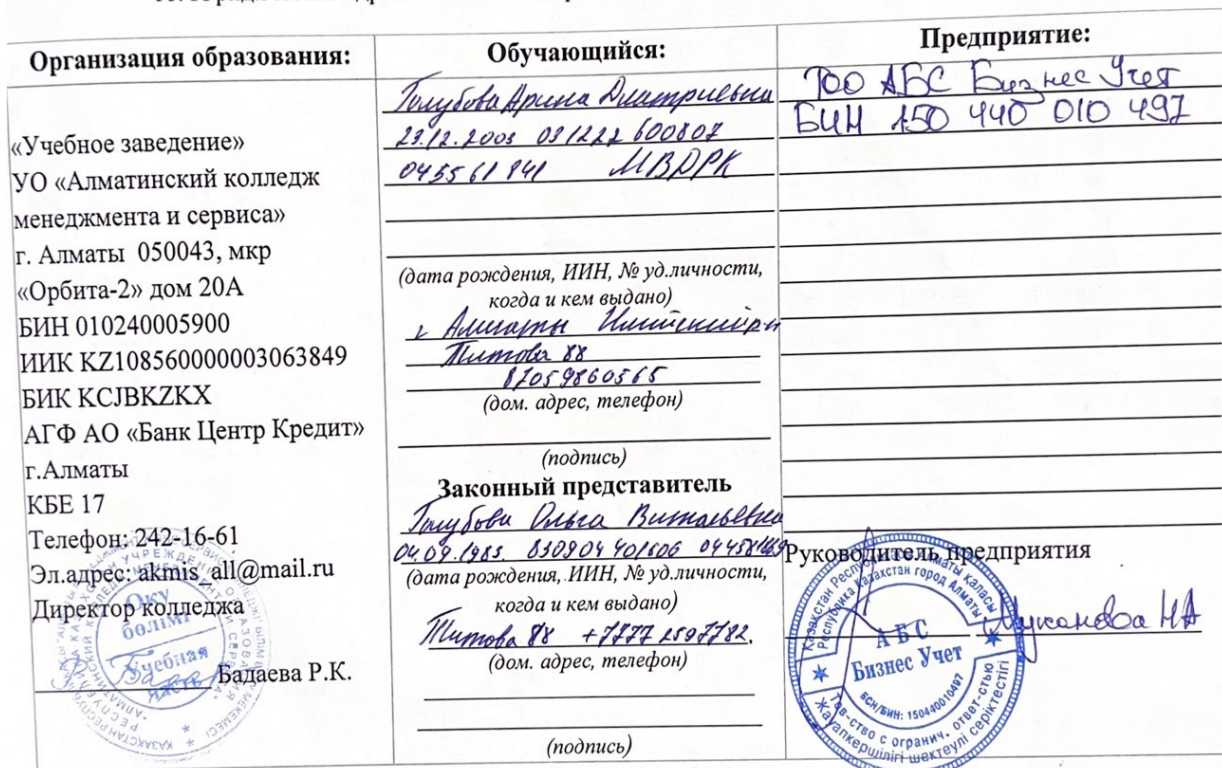 Организация образования:
«Учебное заведение»
УО «Алматинский колледж
менеджмента и сервиса»
г. Алматы 050043, мкр
«Орбита-2» дом 20А
БИН 010240005900
ИИК KZ108560000003063849
БИК KCJBKZKX
АГФ АО «Банк Центр Кредит»
г.Алматы
КБЕ 17
Телефон: 242-16-61
Эл.адрес: akmis_all@mail.ru
Директор колледжа
Бадаева Р.К.
Оқу
бөлімі
Учебная
часть
Обучающийся:
Голубова Арина Дмитриевна
23.12.2003 031222 600807
045561841 МВДРК
(дата рождения, ИИН, № уд.личности,
когда и кем выдано)
г Алматы
Титова 88
87059860565
(дом. адрес, телефон)
(подпись)
Законный представитель
Голубова Ольга Витальевна
04.09.1983. 830904 401606
(дата рождения, ИИН, № уд.личности,
когда и кем выдано)
Титова 88 +7777 2597782.
(дом. адрес, телефон)
(подпись)
Предприятие:
ТОО АБС Бизнес Учет
БИН 150 440 010 497
Руководитель предприятия
Муканова НА
Қазақстан Республикасы Алматы қаласы
Республика Казахстан город Алматы
АБС
Бизнес Учет
БСН/БИН: 150440010497
Тов-ство с огранич. ответ-стью
Жауапкершілігі шектеулі серіктестігі